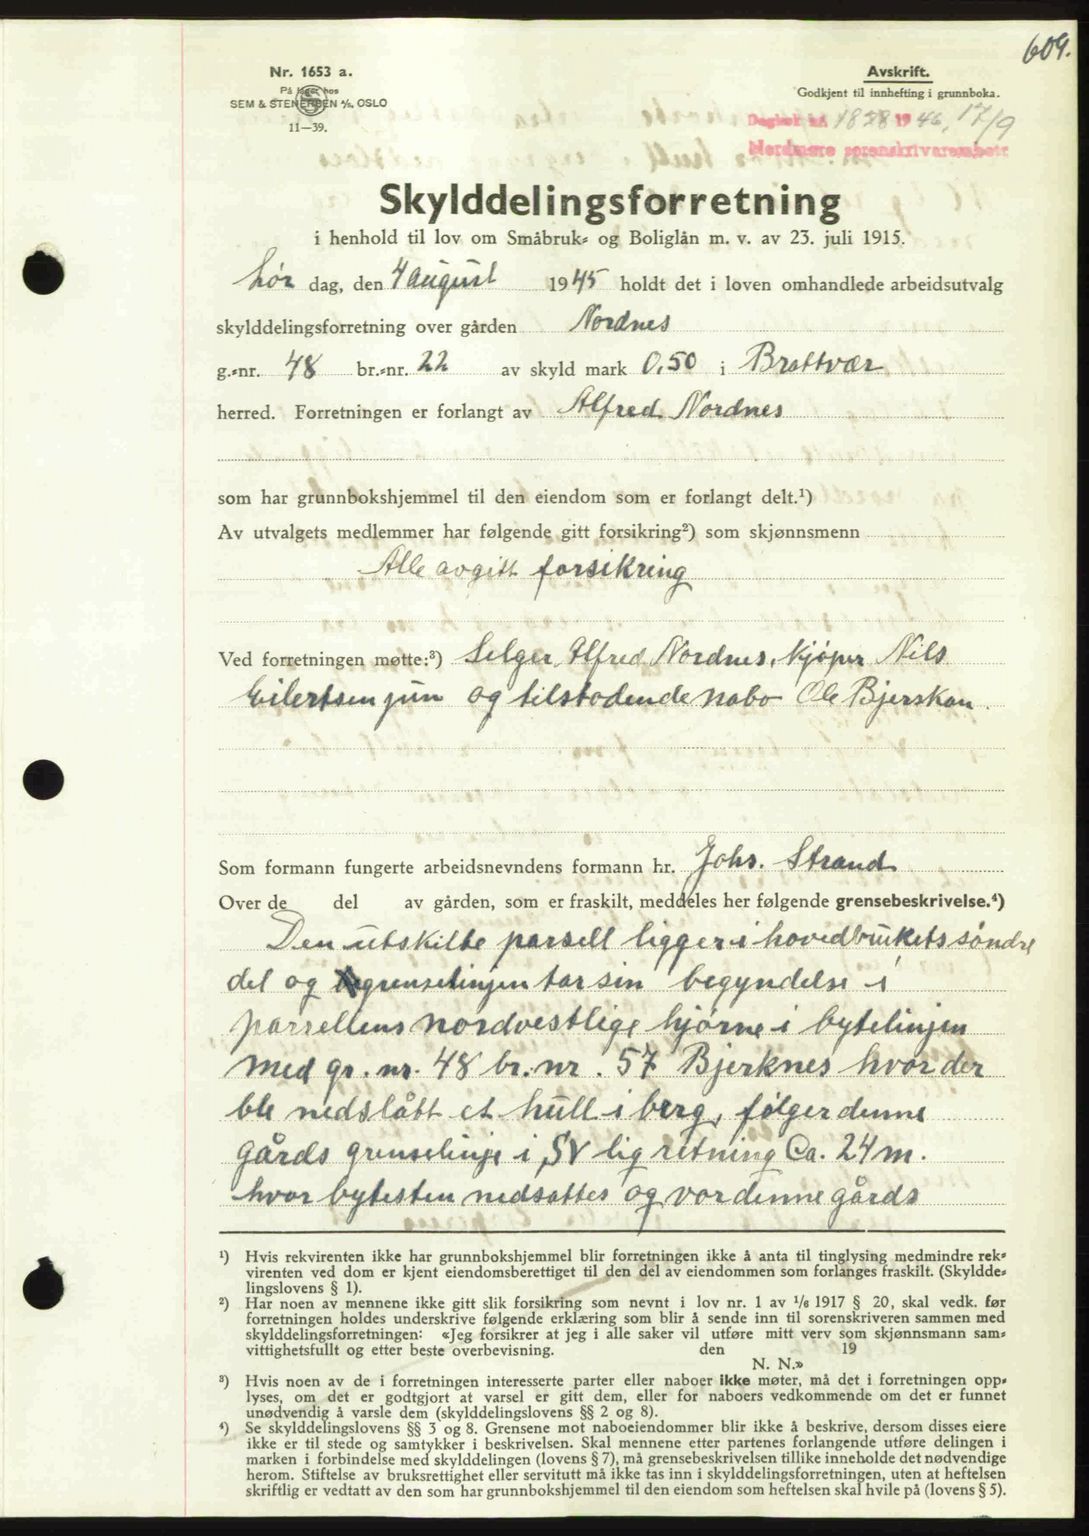 609.
Nr. 1653 a.
På lager hos
SEM & STENERSEN A/S, OSLO
11—39.
Avskrift.
Godkjent til innhefting i grunnboka.
Dagbok nr. 1828 1946, 17/9
Nordmøre sorenskriverembete
Skylddelingsforretning
i henhold til lov om Småbruk- og Boliglån m. v. av 23. juli 1915.
Lør dag, den 4 august 1945 holdt det i loven omhandlede arbeidsutvalg
skylddelingsforretning over gården Nordnes
g.-nr. 48 br.-nr. 22 av skyld mark 0,50 i Brattvær
herred. Forretningen er forlangt av Alfred Nordnes
som har grunnbokshjemmel til den eiendom som er forlangt delt.¹)
Av utvalgets medlemmer har følgende gitt forsikring²) som skjønnsmenn
Alle avgitt forsikring
Ved forretningen møtte:³) Selger Alfred Nordnes, kjøper Nils
Eilertsen jun og tilstødende nabo Ole Bjerskan.
Som formann fungerte arbeidsnevndens formann hr. Johs. Strand
Over de del av gården, som er fraskilt, meddeles her følgende grensebeskrivelse.⁴)
Den utskilte parsell ligger i hovedbrukets søndre
del og grenselinjen tar sin begyndelse i
parsellens nordvestlige hjørne i bytelinjen
med gr. nr. 48 br. nr. 57 Bjerknes hvor der
ble nedslått et hull i berg, følger denne
gårds grenselinje i SV lig retning Ca. 24 m.
hvor bytesten nedsattes og vor denne gårds
¹) Hvis rekvirenten ikke har grunnbokshjemmel blir forretningen ikke å anta til tinglysing medmindre rek-
virenten ved dom er kjent eiendomsberettiget til den del av eiendommen som forlanges fraskilt. (Skyldde-
lingslovens § 1).
²) Har noen av mennene ikke gitt slik forsikring som nevnt i lov nr. 1 av 1/6 1917 § 20, skal vedk. før
forretningen holdes underskrive følgende erklæring som blir å sende inn til sorenskriveren sammen med
skylddelingsforretningen: «Jeg forsikrer at jeg i alle saker vil utføre mitt verv som skjønnsmann sam-
vittighetsfullt og etter beste overbevisning. den 19
N. N.»
³) Hvis noen av de i forretningen interesserte parter eller naboer ikke møter, må det i forretningen opp-
lyses, om det er godtgjort at varsel er gitt dem, eller for naboers vedkommende om det er funnet
unødvendig å varsle dem (skylddelingslovens §§ 2 og 8).
⁴) Se skylddelingslovens §§ 3 og 8. Grensene mot naboeiendommer blir ikke å beskrive, dersom disses eiere
ikke er til stede og samtykker i beskrivelsen. Skal mennene etter partenes forlangende utføre delingen i
marken i forbindelse med skylddelingen (lovens § 7), må grensebeskrivelsen tillike inneholde det nødvendige
herom. Stiftelse av bruksrettighet eller servitutt må ikke tas inn i skylddelingsforretningen, uten at heftelsen
skriftlig er vedtatt av den som har grunnbokshjemmel til den eiendom som heftelsen skal hvile på (lovens § 5).